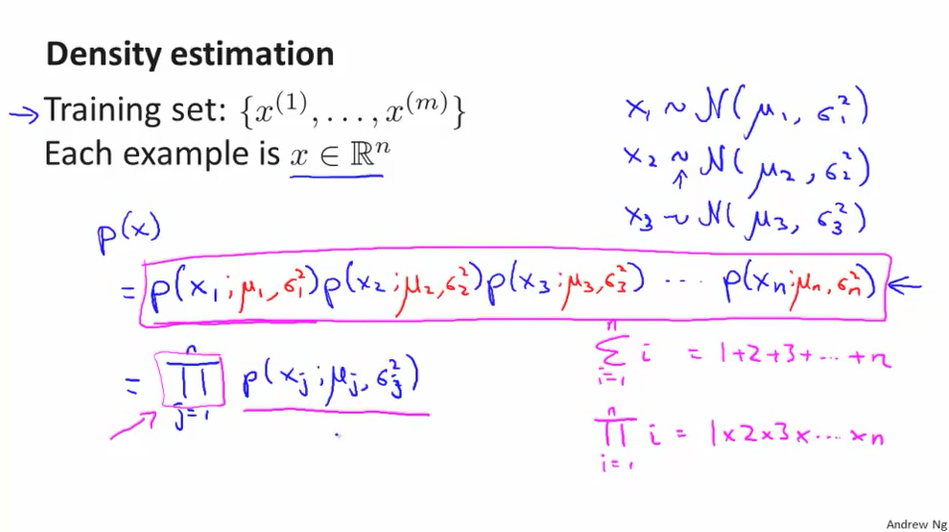 Density estimation
→ Training set: {x^(1), . . . , x^(m)}
Each example is x ∈ ℝ^n
x₁ ~ N(μ₁, σ₁²)
x₂ ~ N(μ₂, σ₂²)
x₃ ~ N(μ₃, σ₃²)
p(x)
= p(x₁; μ₁, σ₁²) p(x₂; μ₂, σ₂²) p(x₃; μ₃, σ₃²) ··· p(xₙ; μₙ, σₙ²) ←
= ∏_{j=1}^{n} p(xⱼ; μⱼ, σⱼ²)
∑_{i=1}^{n} i = 1+2+3+···+n
∏_{i=1}^{n} i = 1×2×3×···×n
Andrew Ng